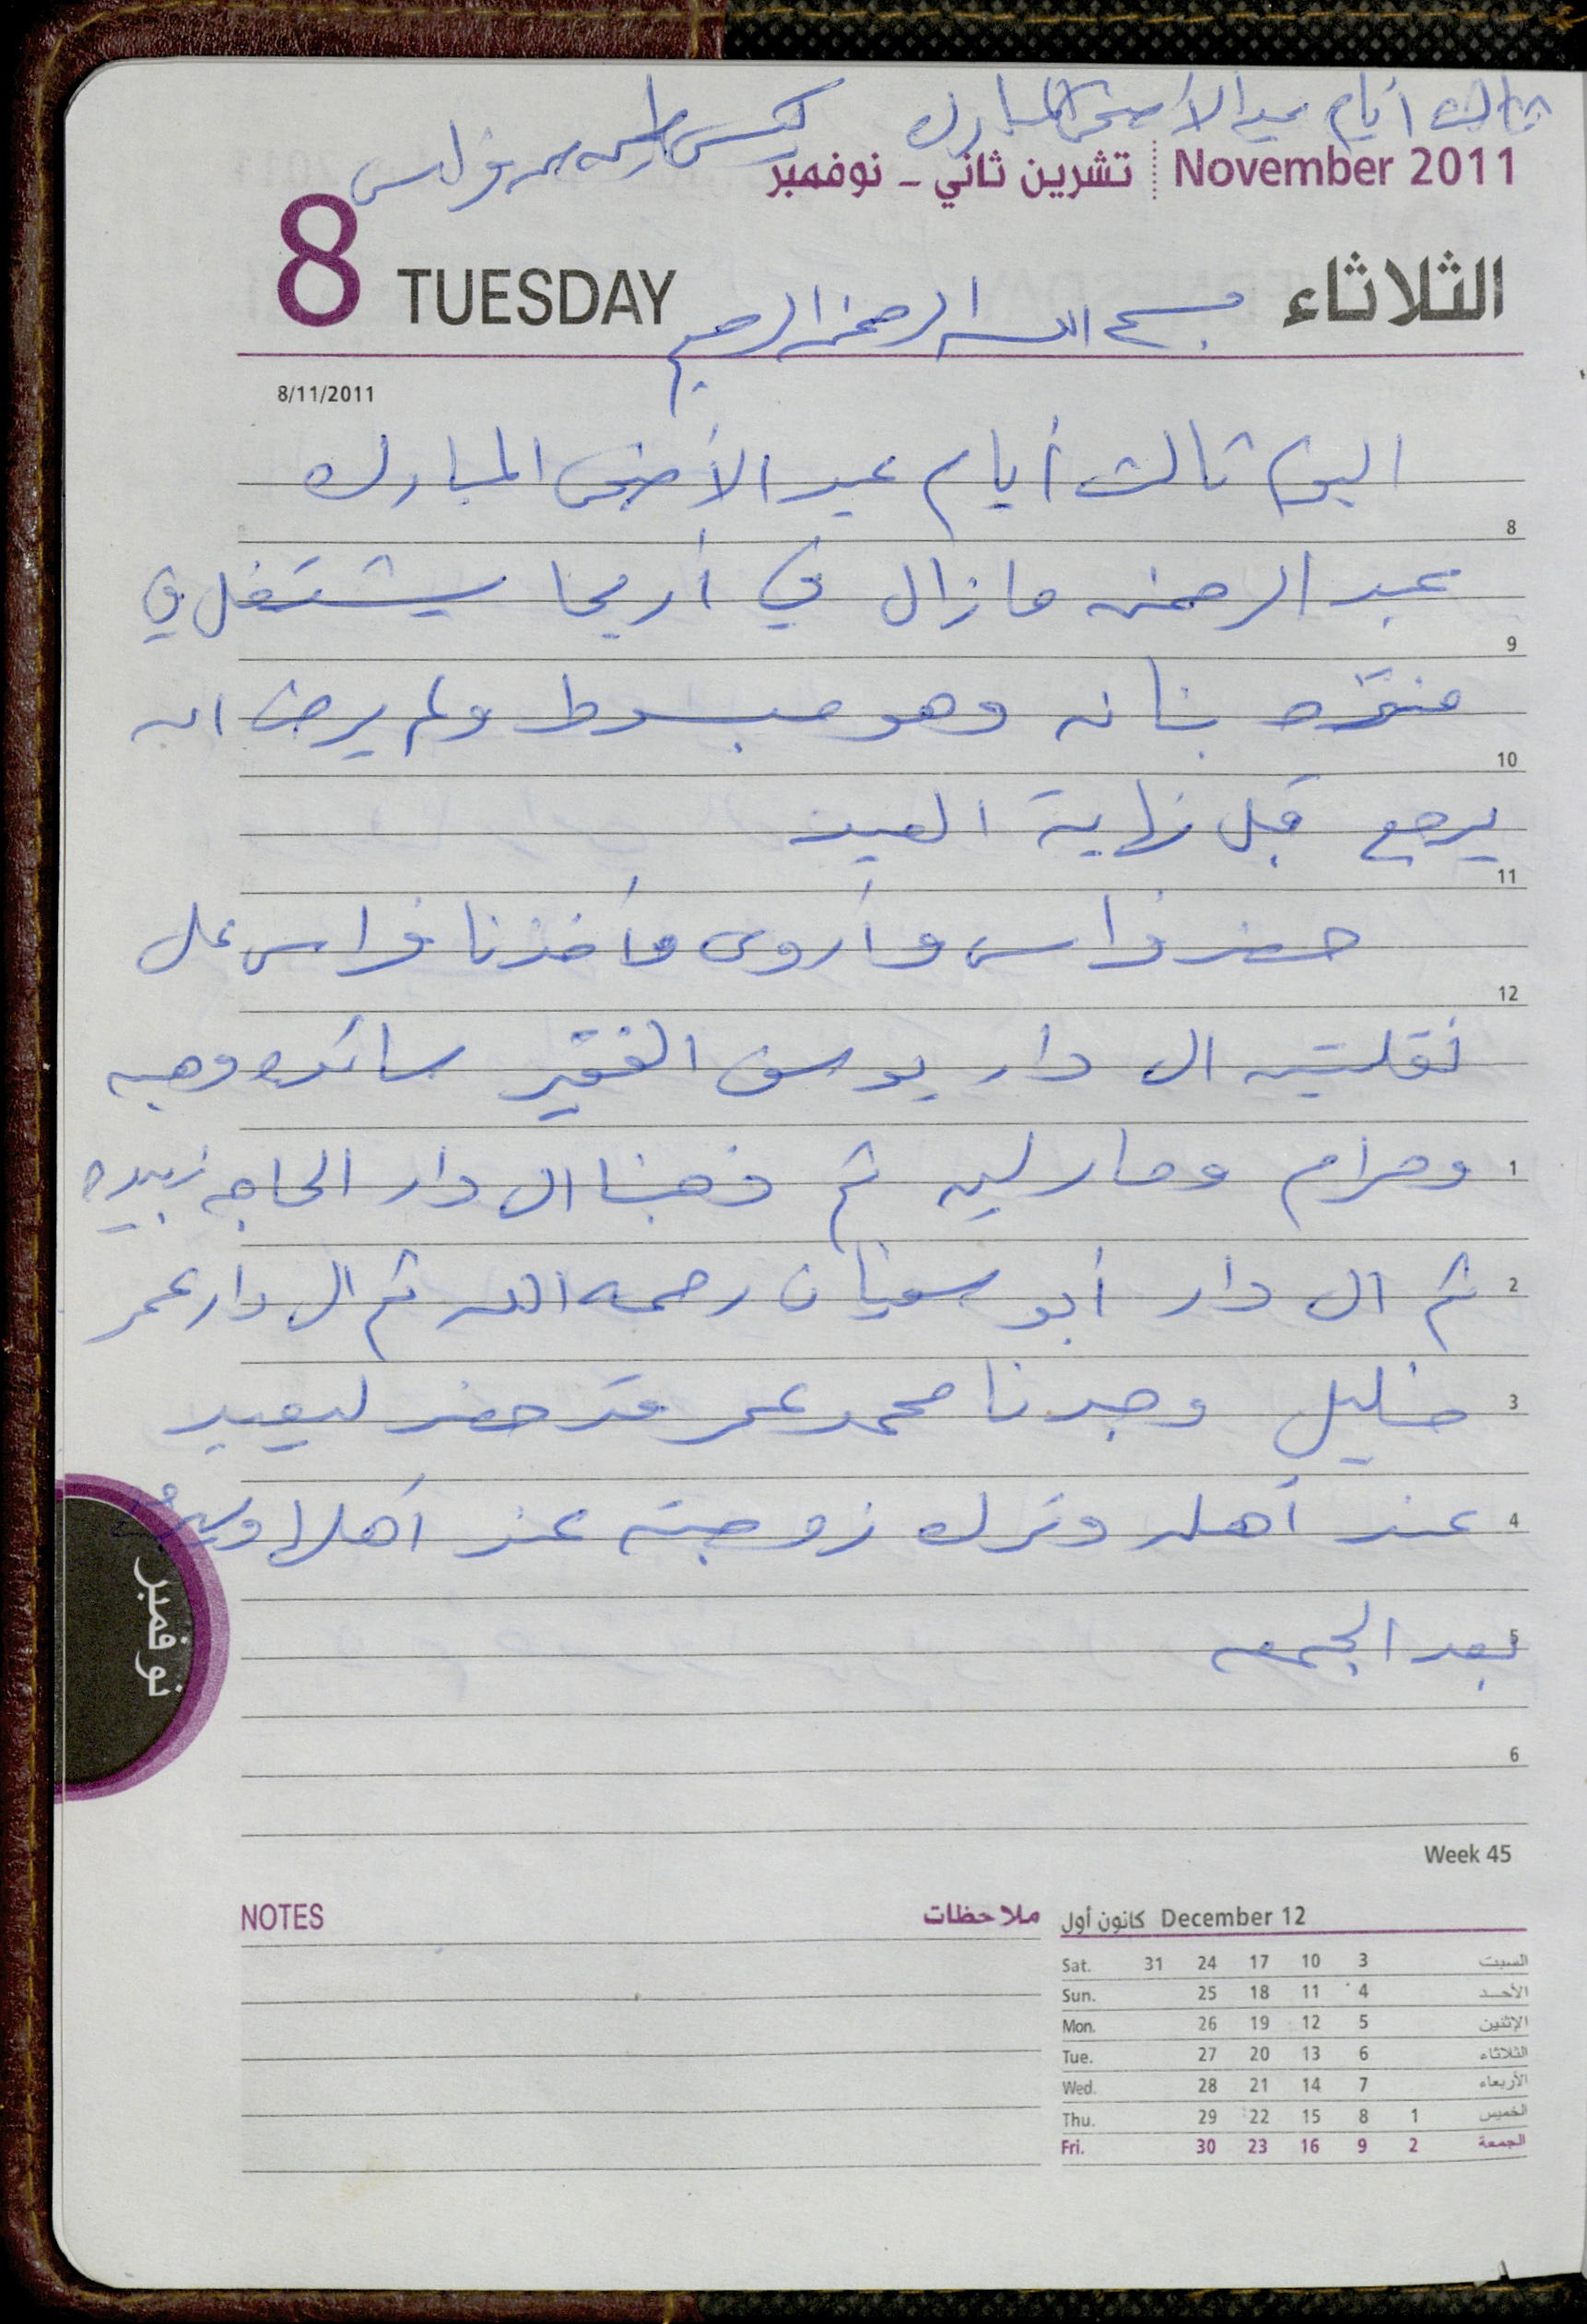 ثالث أيام عيد الأضحى المبارك كيس طحين من فراس
November 2011 تشرين ثاني - نوفمبر
8 TUESDAY الثلاثاء
بسم الله الرحمن الرحيم
8/11/2011
اليوم ثالث أيام عيد الأضحى المبارك
8
عبد الرحمن مازال في أريحا يشتغل في
9
منتزه بنانه وهو مبسوط ولم يرض ان
10
يرجع قبل نهاية العيد
11
حضر فراس وأروى وأخذنا فراس على
12
نقلتين الى دار يوسف الفقير سائده وهبه
ومرام ومارلين ثم ذهبنا الى دار الحاجه زبيده
1
ثم الى دار أبو سفيان رحمه الله ثم الى دار عمر
2
خليل وجدنا محمد عمر قد حضر ليعيد
3
عند أهله وترك زوجته عند أهلها
4
بعد الجمعه
5
6
نوفمبر
Week 45
NOTES ملاحظات
كانون أول December 12
Sat. 31 24 17 10 3 السبت
Sun. 25 18 11 4 الأحد
Mon. 26 19 12 5 الإثنين
Tue. 27 20 13 6 الثلاثاء
Wed. 28 21 14 7 الأربعاء
Thu. 29 22 15 8 1 الخميس
Fri. 30 23 16 9 2 الجمعة